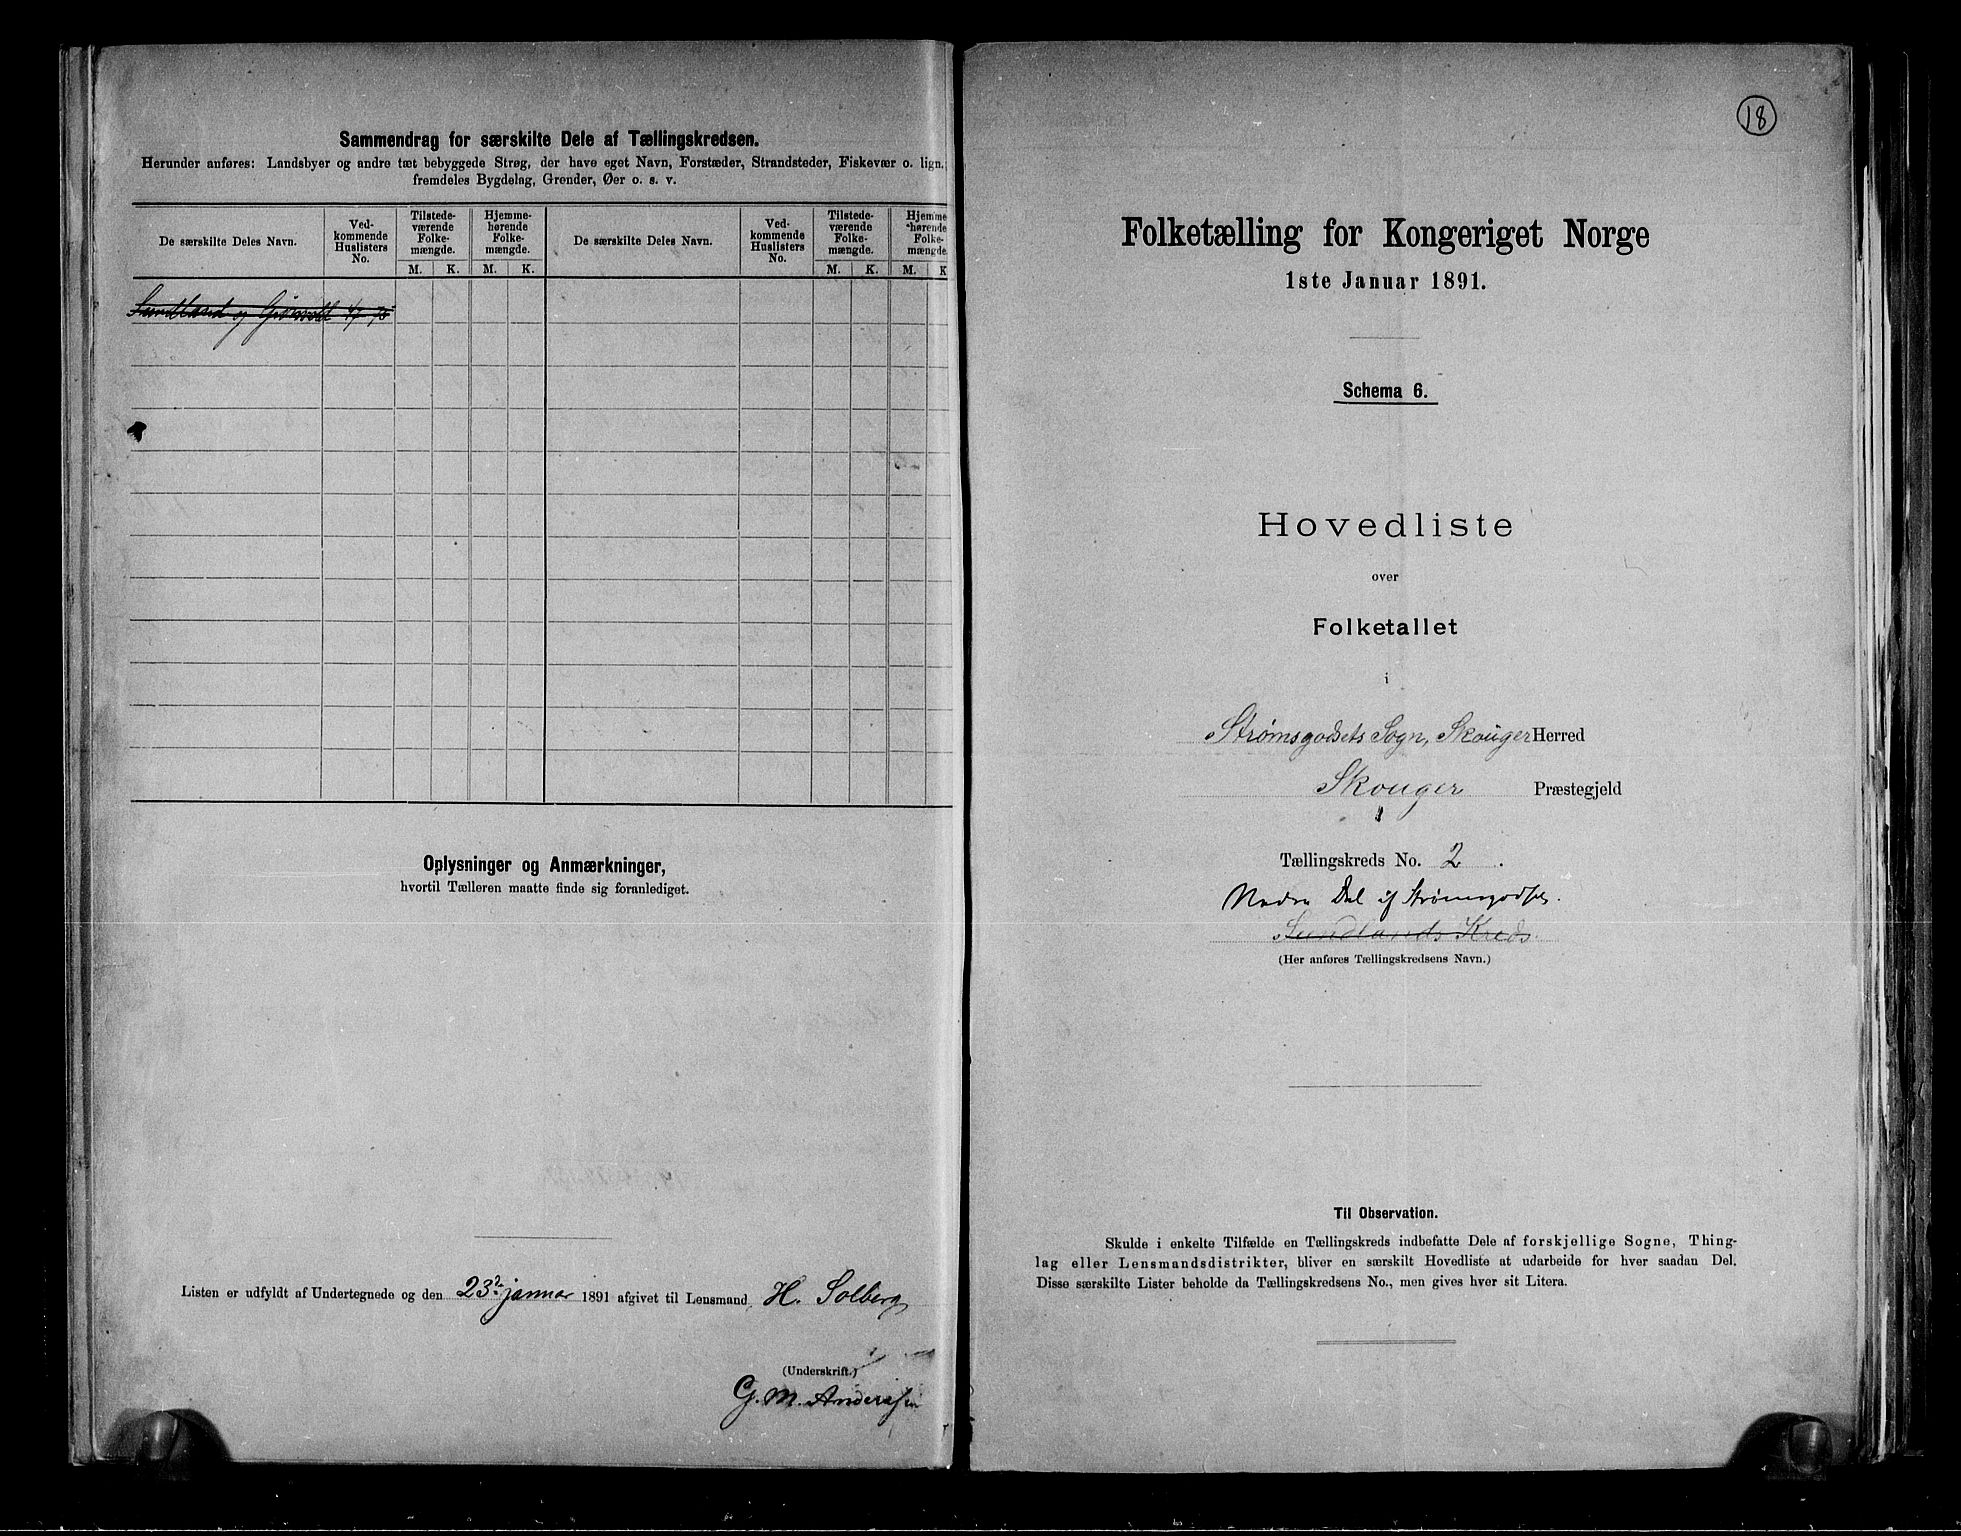 Sammendrag for særskilte Dele af Tællingskredsen.
Herunder anføres: Landsbyer og andre tæt bebyggede Strøg, der have eget Navn, Forstæder, Strandsteder, Fiskevær o. lign.,
fremdeles Bygdelag, Grender, Øer o. s. v.
De særskilte Deles Navn.
Ved-
kommende
Huslisters
No.
Tilstede-
værende
Folke-
mængde.
M. K.
Hjemme-
hørende
Folke-
mængde.
M. K.
De særskilte Deles Navn.
Ved-
kommende
Huslisters
No.
Tilstede-
værende
Folke-
mængde.
M. K.
Hjemme-
hørende
Folke-
mængde.
M. K
Sundland og
Oplysninger og Anmærkninger,
hvortil Tælleren maatte finde sig foranlediget.
Listen er udfyldt af Undertegnede og den 23 januar 1891 afgivet til Lensmand H. Solberg
(Underskrift.)
G. M. Anderssen
18
Folketælling for Kongeriget Norge
1ste Januar 1891.
Schema 6.
Hovedliste
over
Folketallet
i
Strømsgodsets Sogn, Skouger Herred
Skouger Præstegjeld
Tællingskreds No. 2.
Nedre Del af Strømsgodset.
Sundlands Kreds.
(Her anføres Tællingskredsens Navn.)
Til Observation.
Skulde i enkelte Tilfælde en Tællingskreds indbefatte Dele af forskjellige Sogne, Thing-
lag eller Lensmandsdistrikter, bliver en særskilt Hovedliste at udarbeide for hver saadan Del.
Disse særskilte Lister beholde da Tællingskredsens No., men gives hver sit Litera.